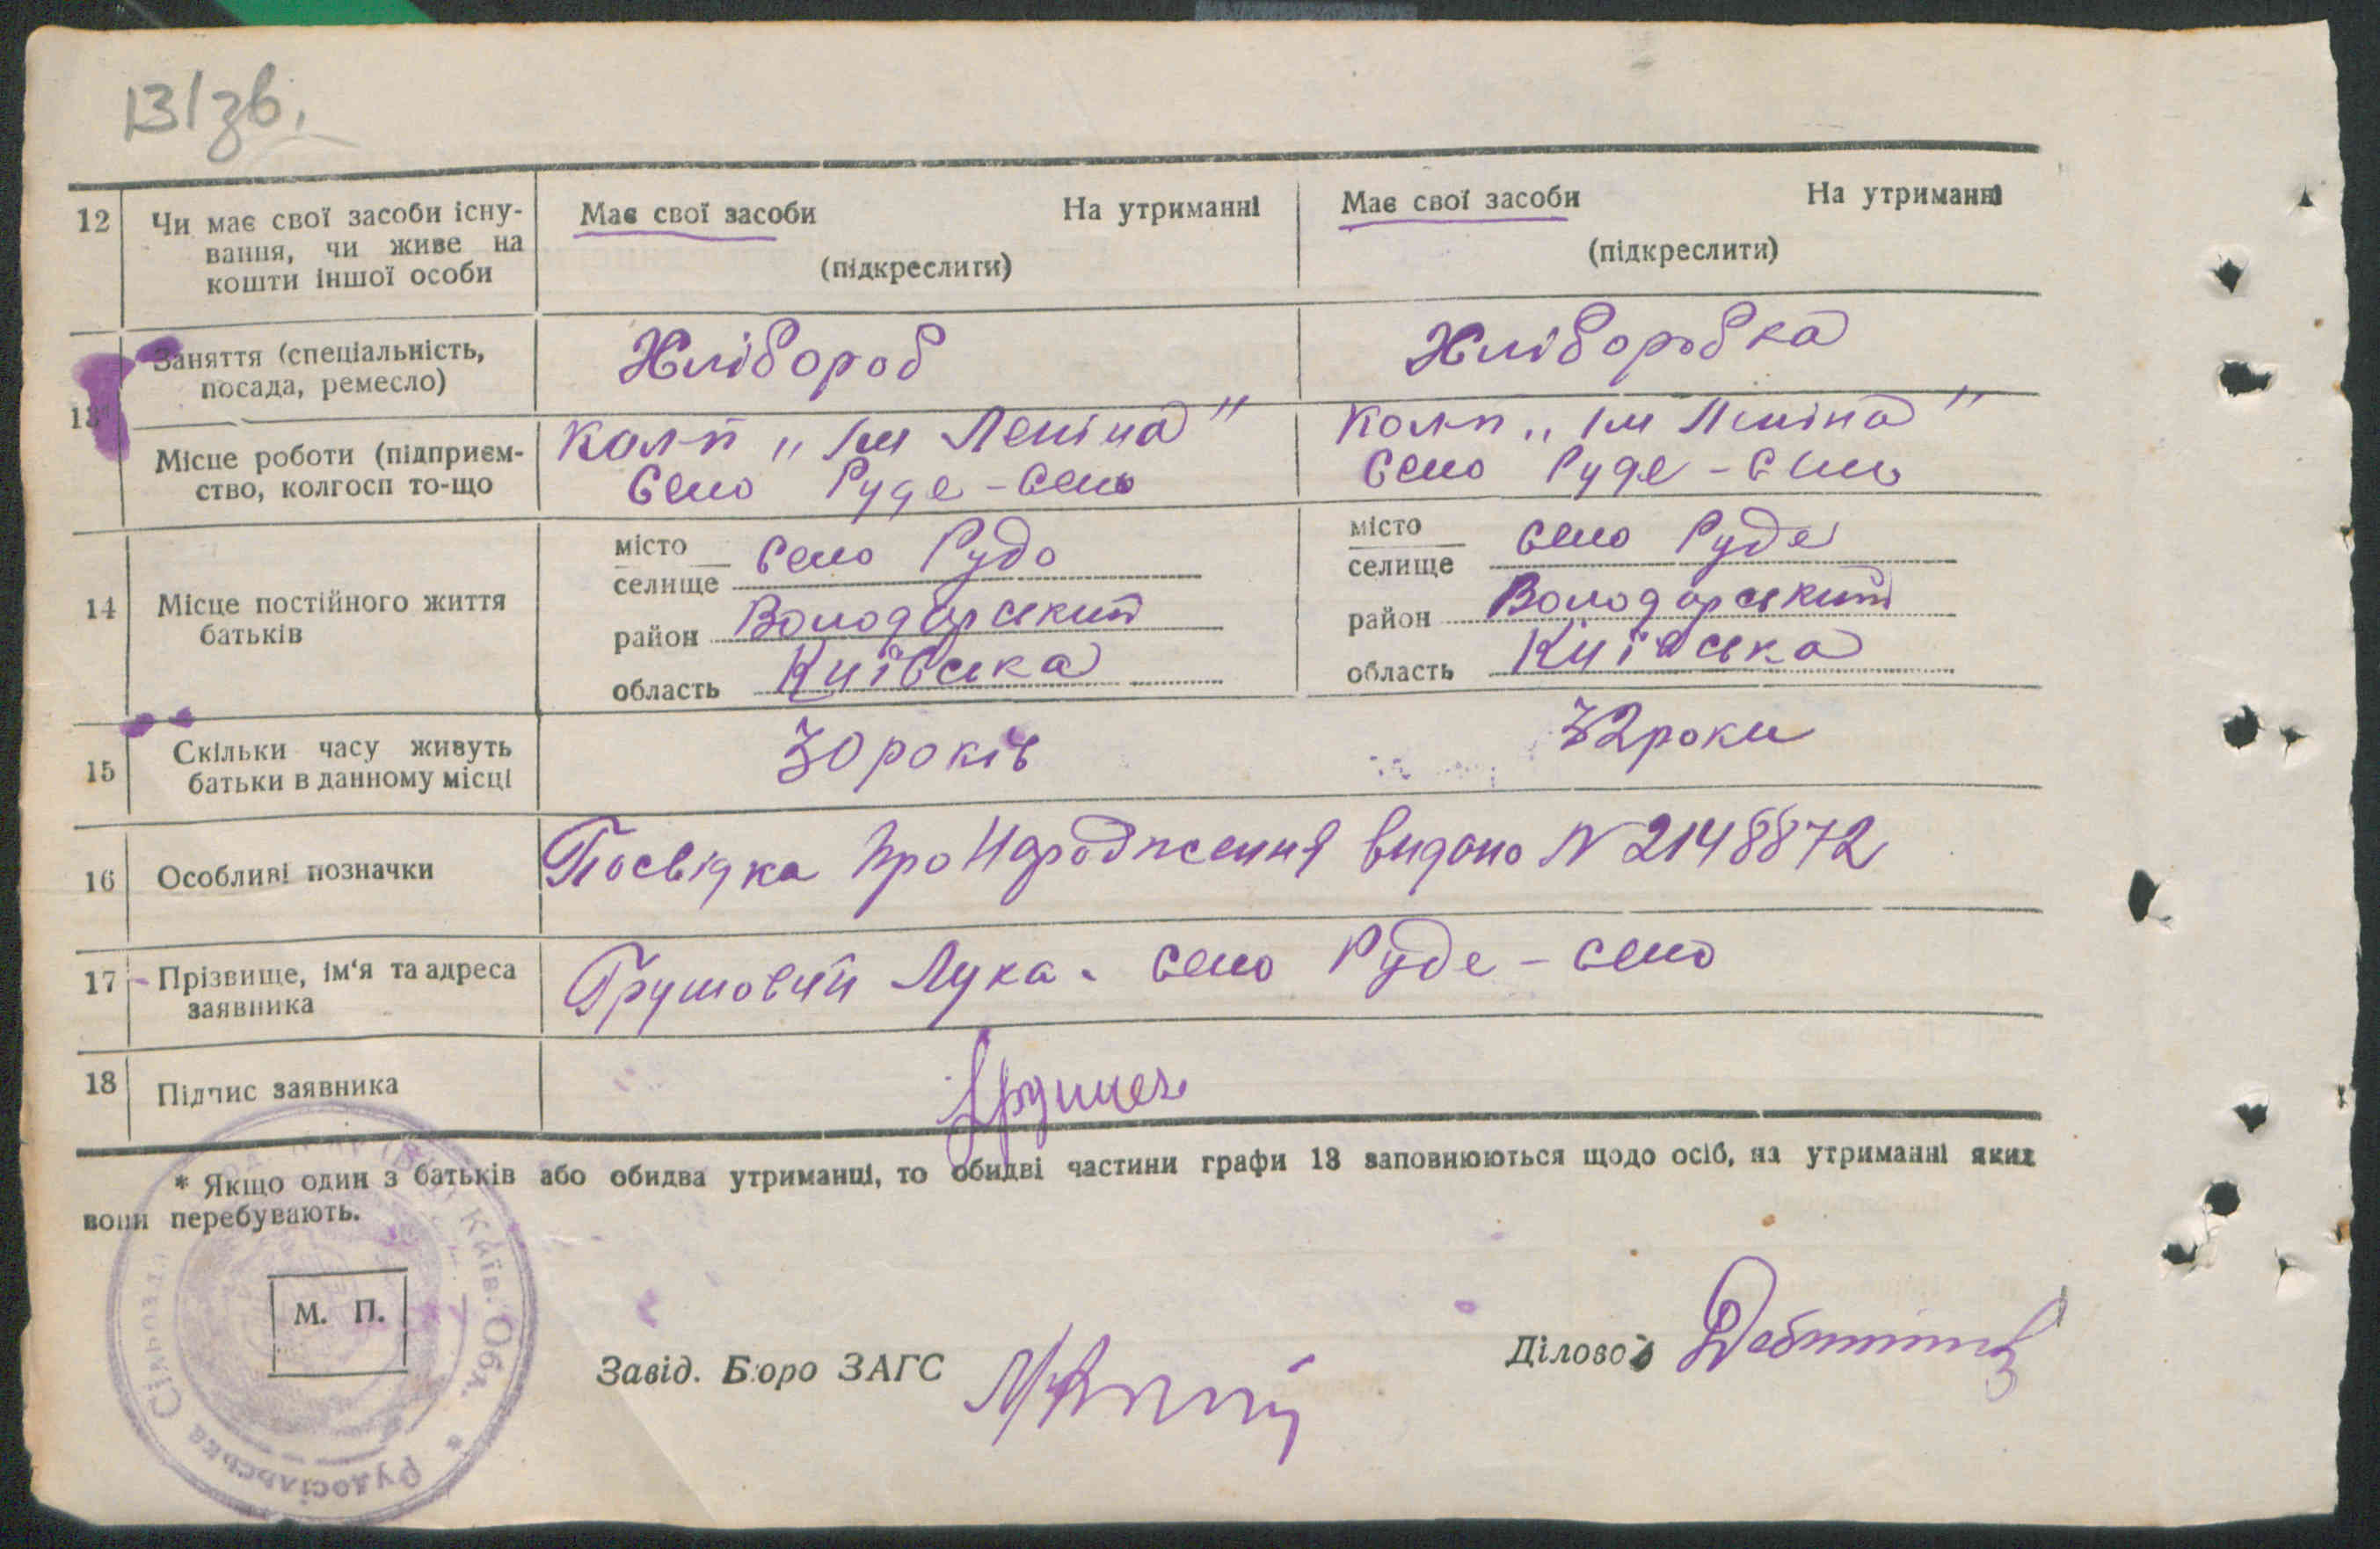 131зв.
12 Чи має свої засоби існу-
вання, чи живе на
кошти іншої особи
Має свої засоби На утриманні
(підкреслити)
Має свої засоби На утриманні
(підкреслити)
13* Заняття (спеціальність,
посада, ремесло)
Хлібороб
Хліборобка
Місце роботи (підприєм-
ство, колгосп то-що
Колг „Ім Леніна"
Село Руде-село
Колг „Ім Леніна"
Село Руде-село
14 Місце постійного життя
батьків
місто
селище село Руде
район Володарський
область Київська
місто
селище село Руде
район Володарський
область Київська
15 Скільки часу живуть
батьки в данному місці
30 років
32 роки
16 Особливі позначки
Посвідка про Народження видано N 2148872
17 Прізвище, ім'я та адреса
заявника
Грушовий Лука. село Руде-село
18 Підпис заявника
* Якщо один з батьків або обидва утриманці, то обидві частини графи 13 заповнюються щодо осіб, на утриманні яких
вони перебувають.
М. П.
Рудосільська Сільрада Київ. Обл.
Завід. Бюро ЗАГС
Діловод